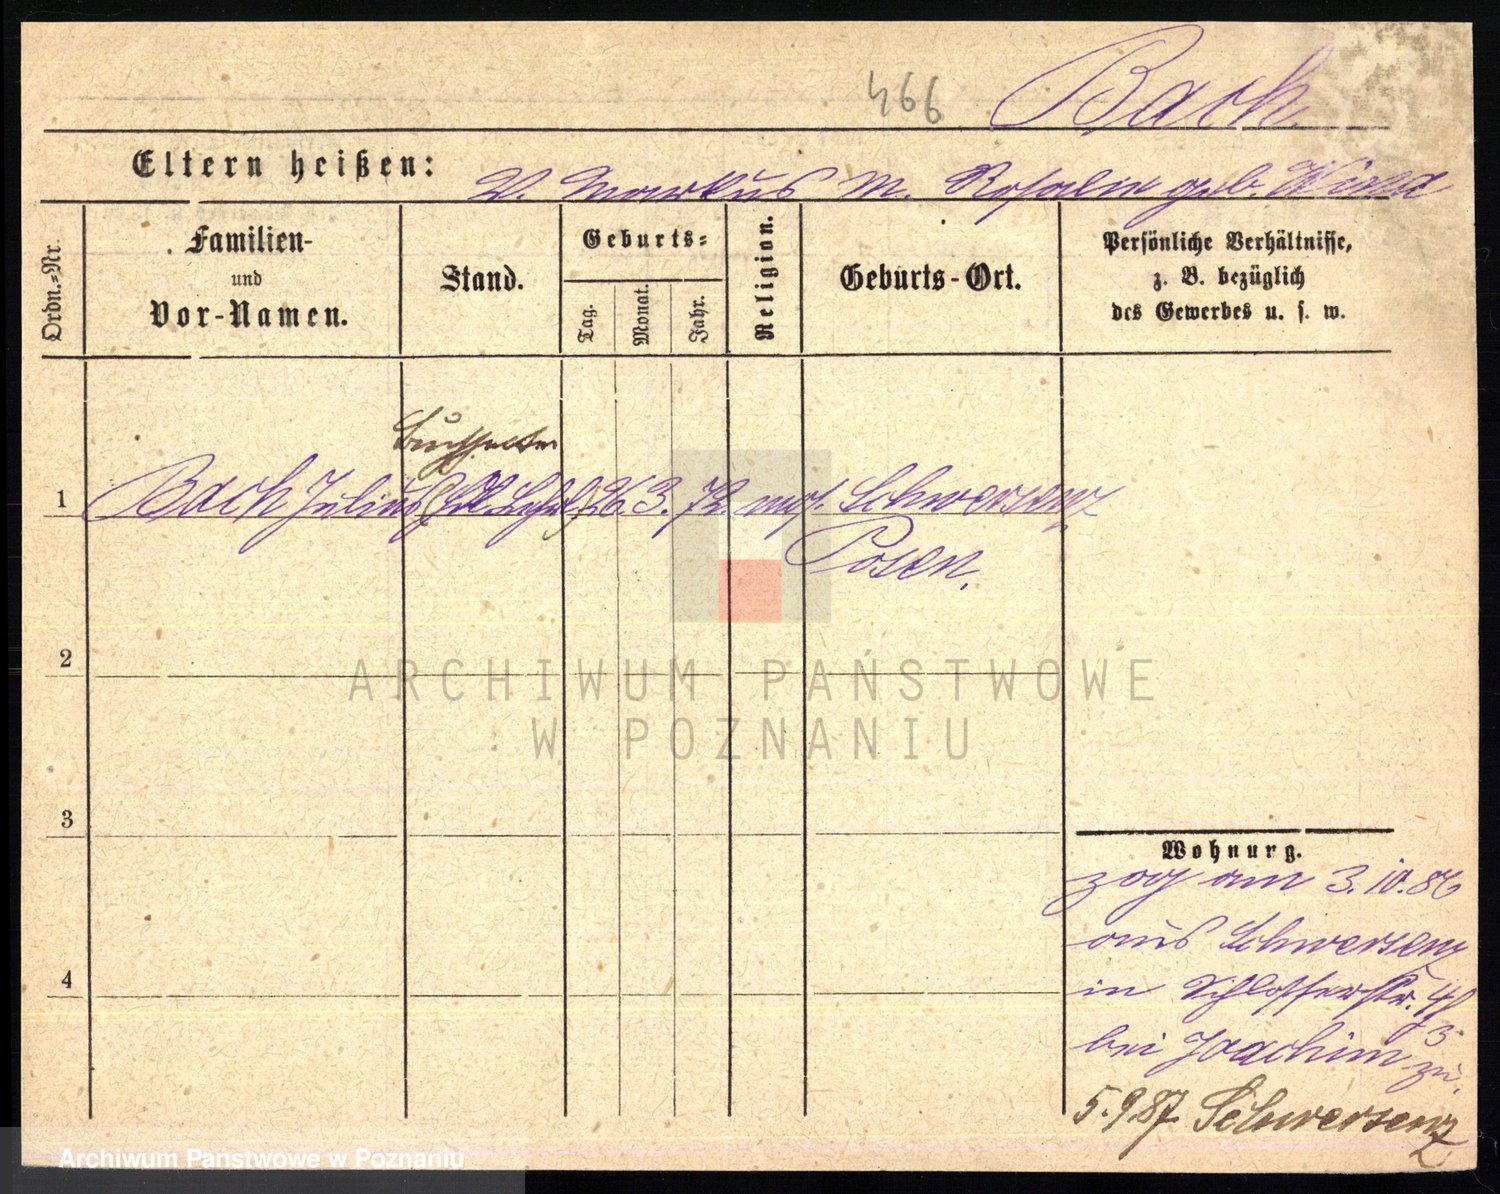 466 Bach.
Eltern heißen: V. Markus M. Rosalie geb.
Ordn.=Nr.
Familien-
und
Vor-Namen.
Stand.
Geburts=
Tag.
Monat.
Jahr.
Religion.
Geburts-Ort.
Persönliche Verhältnisse,
z. B. bezüglich
des Gewerbes u. s. w.
Buchhalter
1 Bach Julius 26. 3. 72. mos. Schwersenz
Posen.
2
ARCHIWUM PAŃSTWOWE
W POZNANIU
3
Wohnung.
zog am 3. 10. 86
aus Schwersenz
4
in Schlosserstr.
bei Joachim zu.
5.9.87 Schwersenz
Archiwum Państwowe w Poznaniu